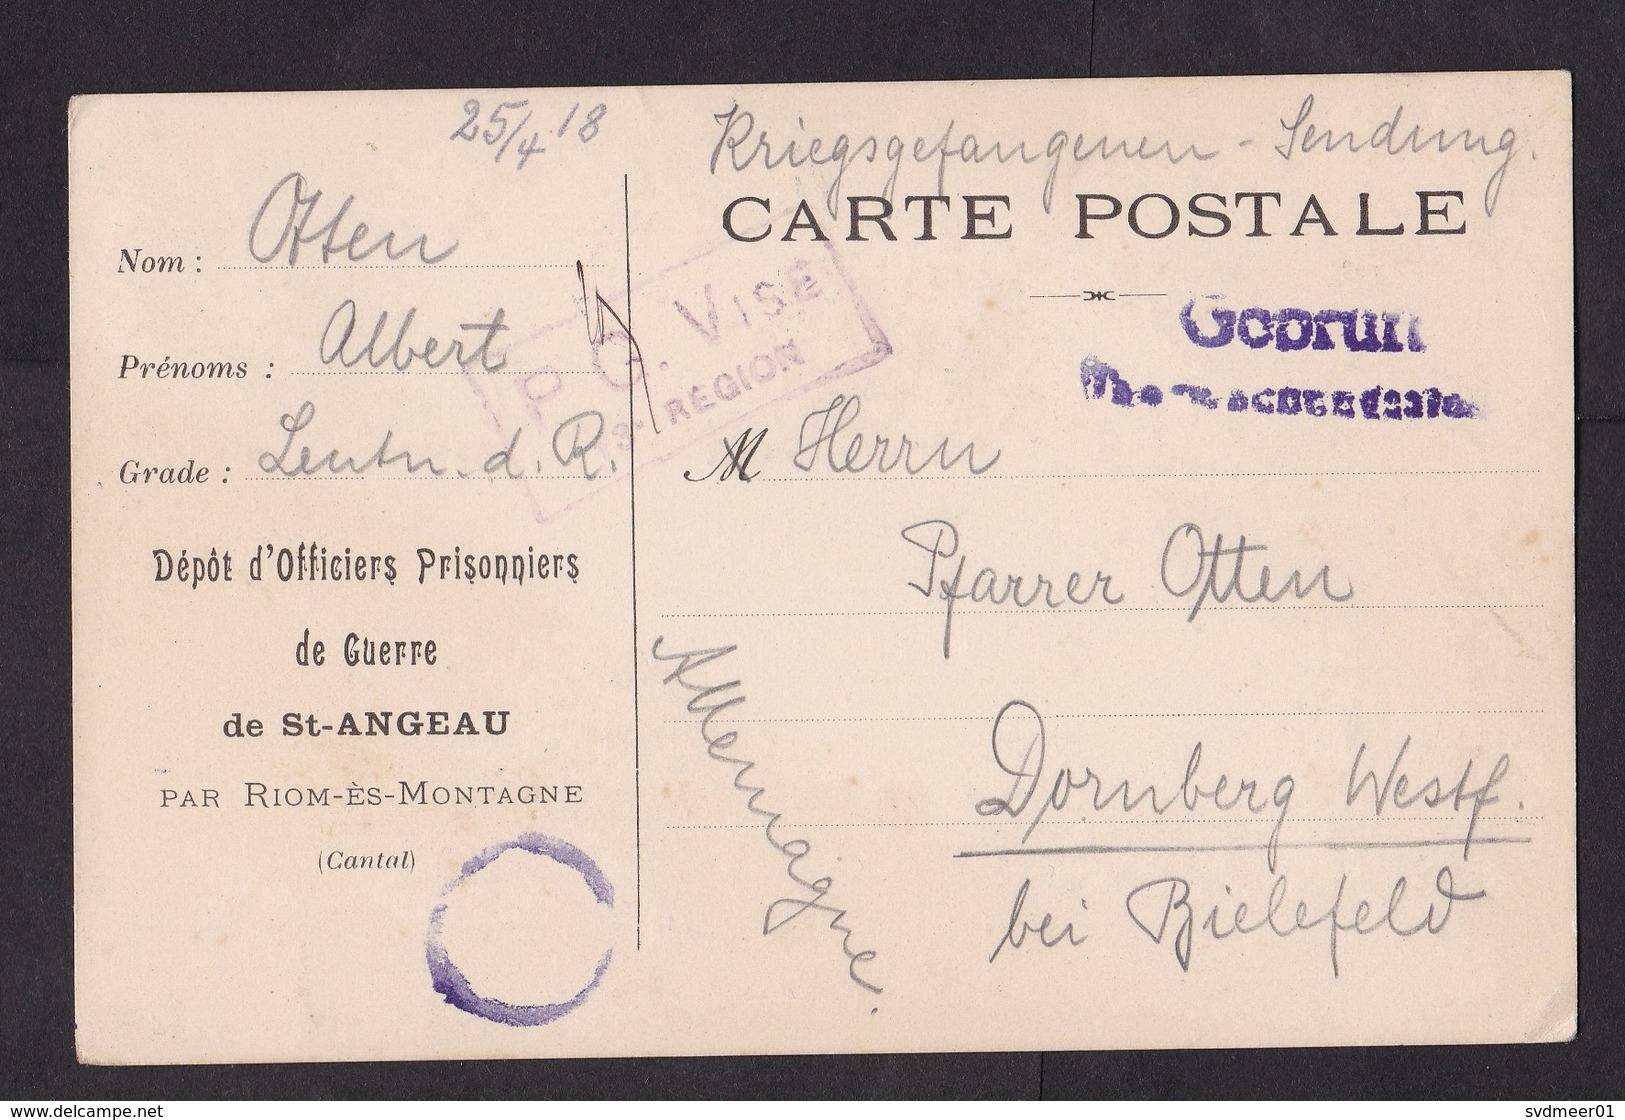 25/4 18
Kriegsgefangenen - Sendung.
CARTE POSTALE
Nom : Otten
Prénoms : Albert
Grade : Leutn. d. R.
P. G. VISÉ
RÉGION
M Herrn
Pfarrer Otten
Dornberg Westf.
bei Bielefeld
Allemagne.
Dépôt d'Officiers Prisonniers
de Guerre
de St-ANGEAU
PAR RIOM-ÈS-MONTAGNE
(Cantal)
delcampe.net
svdmeer01